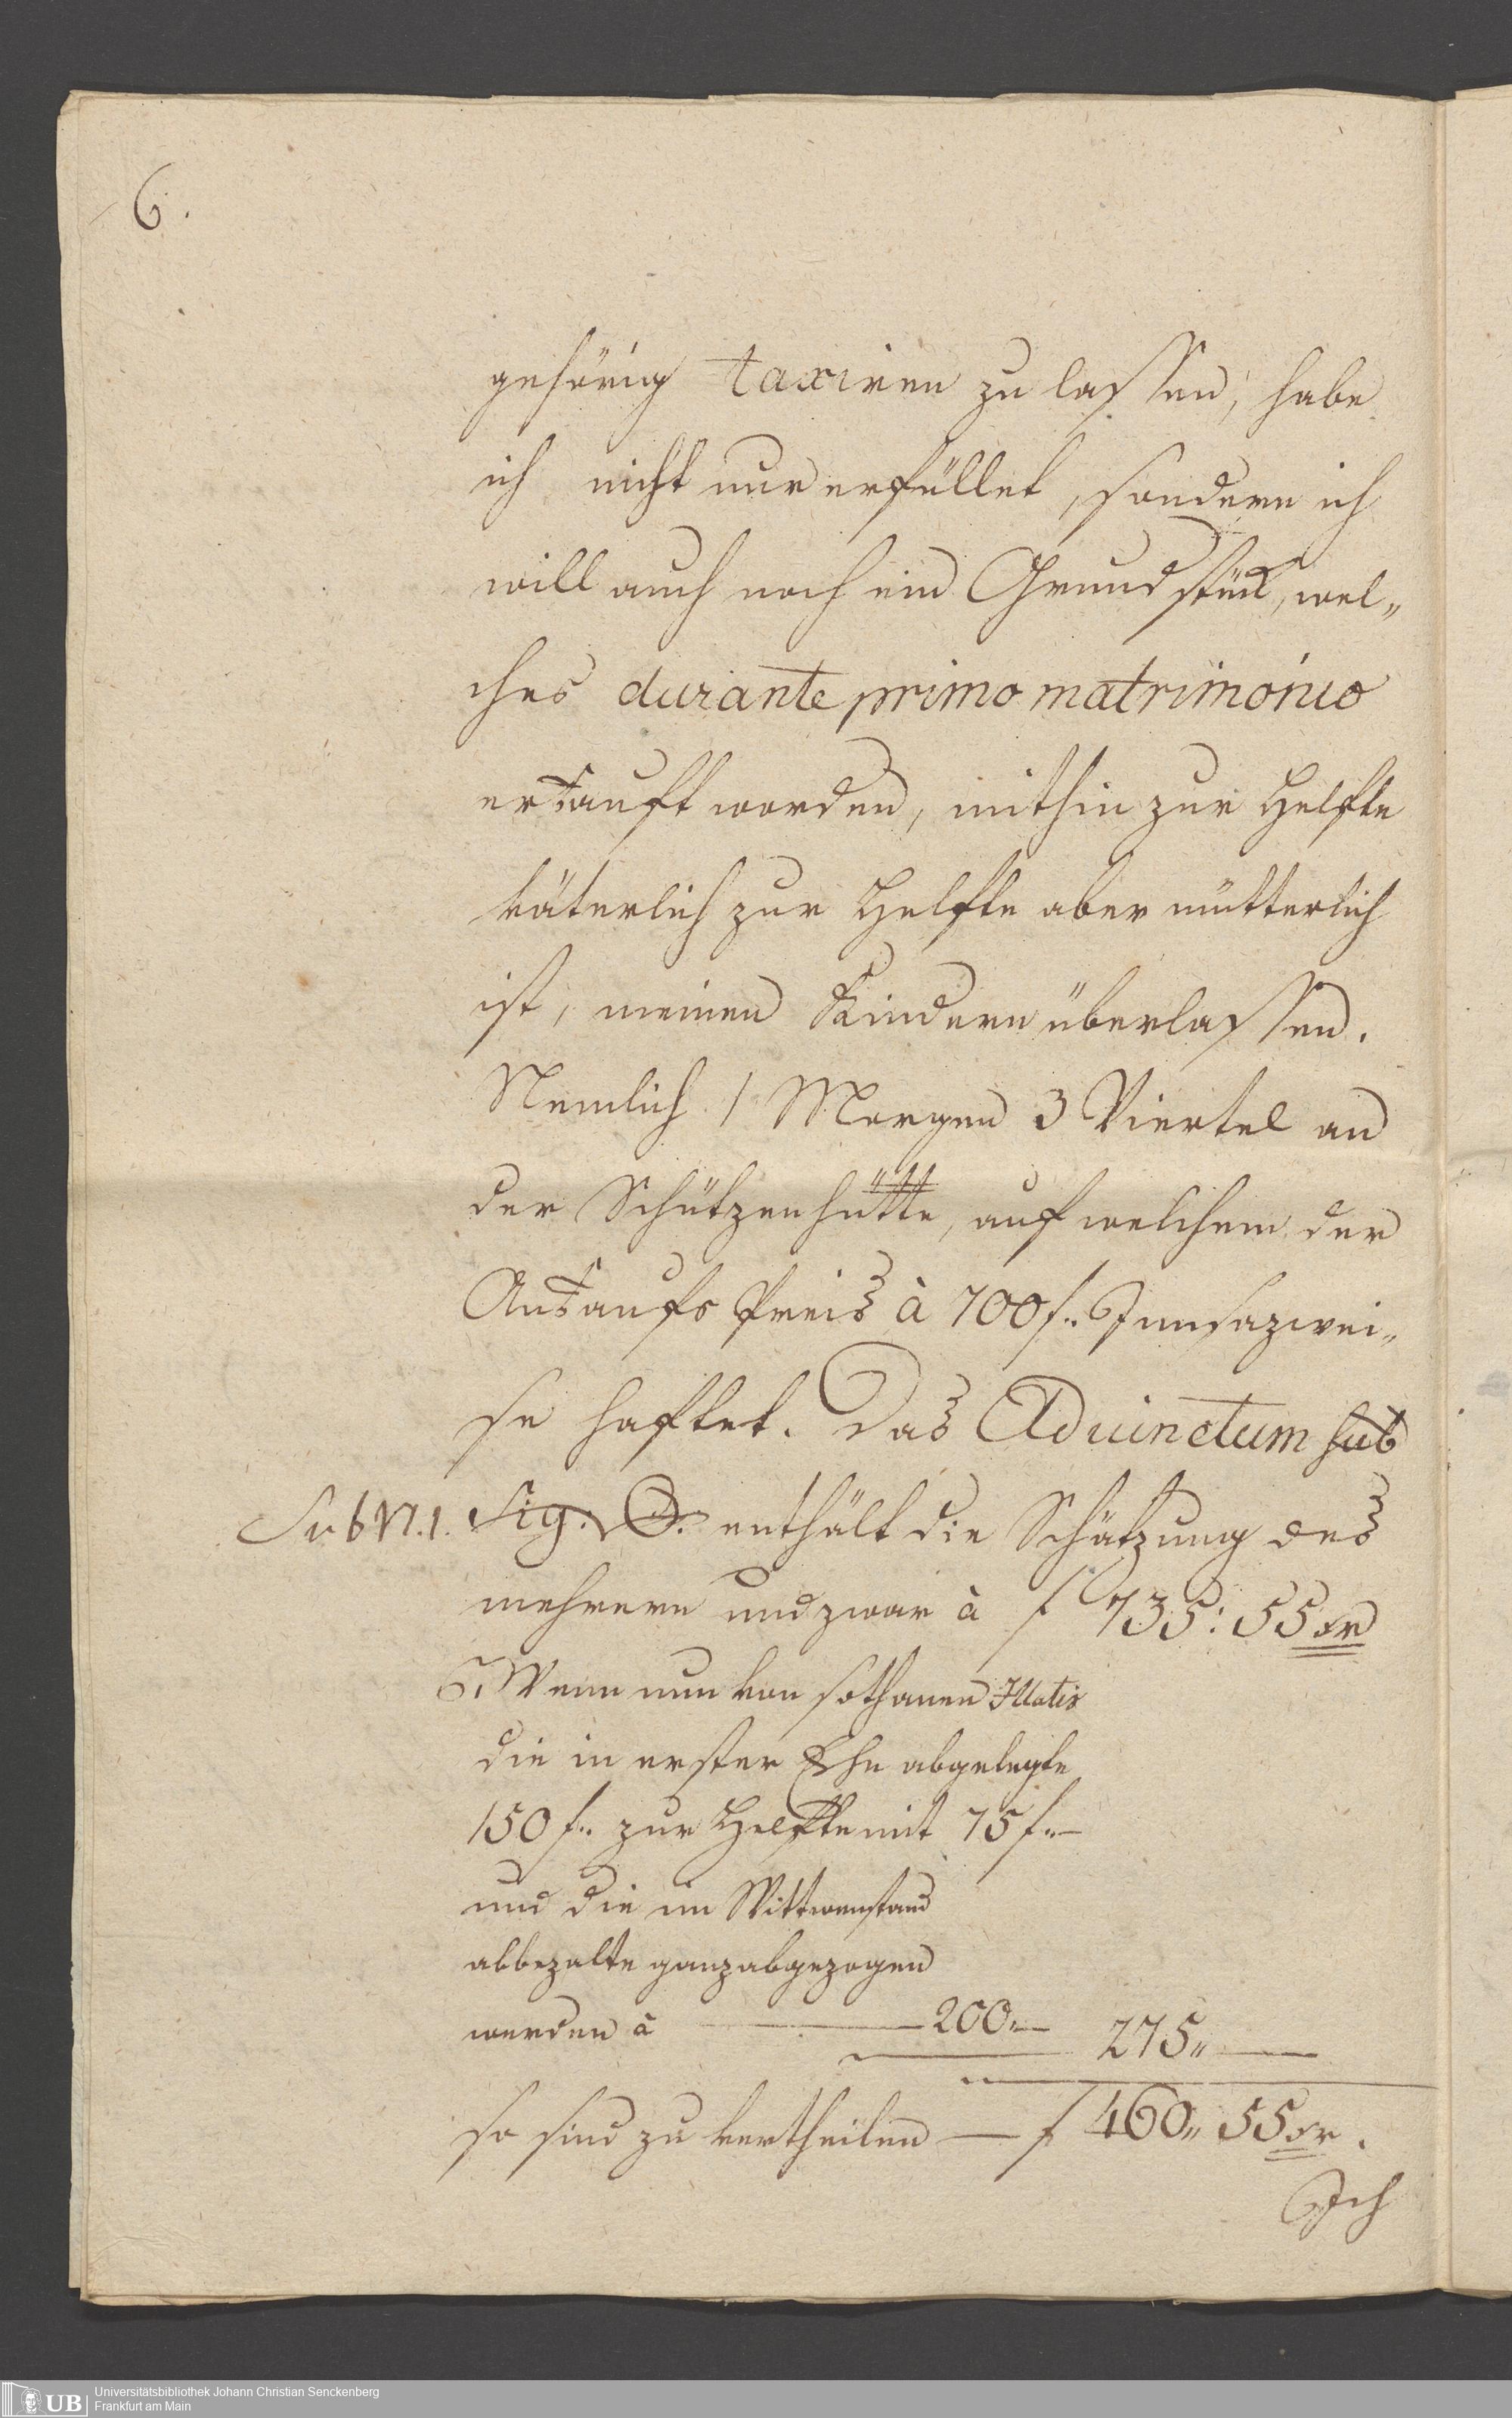 6.
gehörig taxiren zu lassen, habe
ich nicht nur erfüllet, sondern ich
will auch noch ein Grundstück, wel„
ches durante primo matrimonio
erkauft worden, mithin zur Helfte
väterlich zur Helfte aber mütterlich
ist, meinen Kindern überlassen.
Nemlich 1 Morgen 3 Viertel an
der Schützenhütte, auf welchem der
Ankaufs Preis à 700 f.. Innsazwei„
se haftet. Das Aduinctum sub
Sub N. 1. Sig. enthält die Schätzung des
mehrern und zwar à f 735: 55 xr
6. Wenn nun von sothanen Illatis
die in erster Ehe abgelegte
150 f.. zur Helfte mit 75 f..—
und die im Wittwenstand
abbezalte ganz abgezogen
werden à — 200.—
275„ —
so sind zu vertheilen — f 460„ 55 xr.
Ich
UB Universitätsbibliothek Johann Christian Senckenberg
Frankfurt am Main